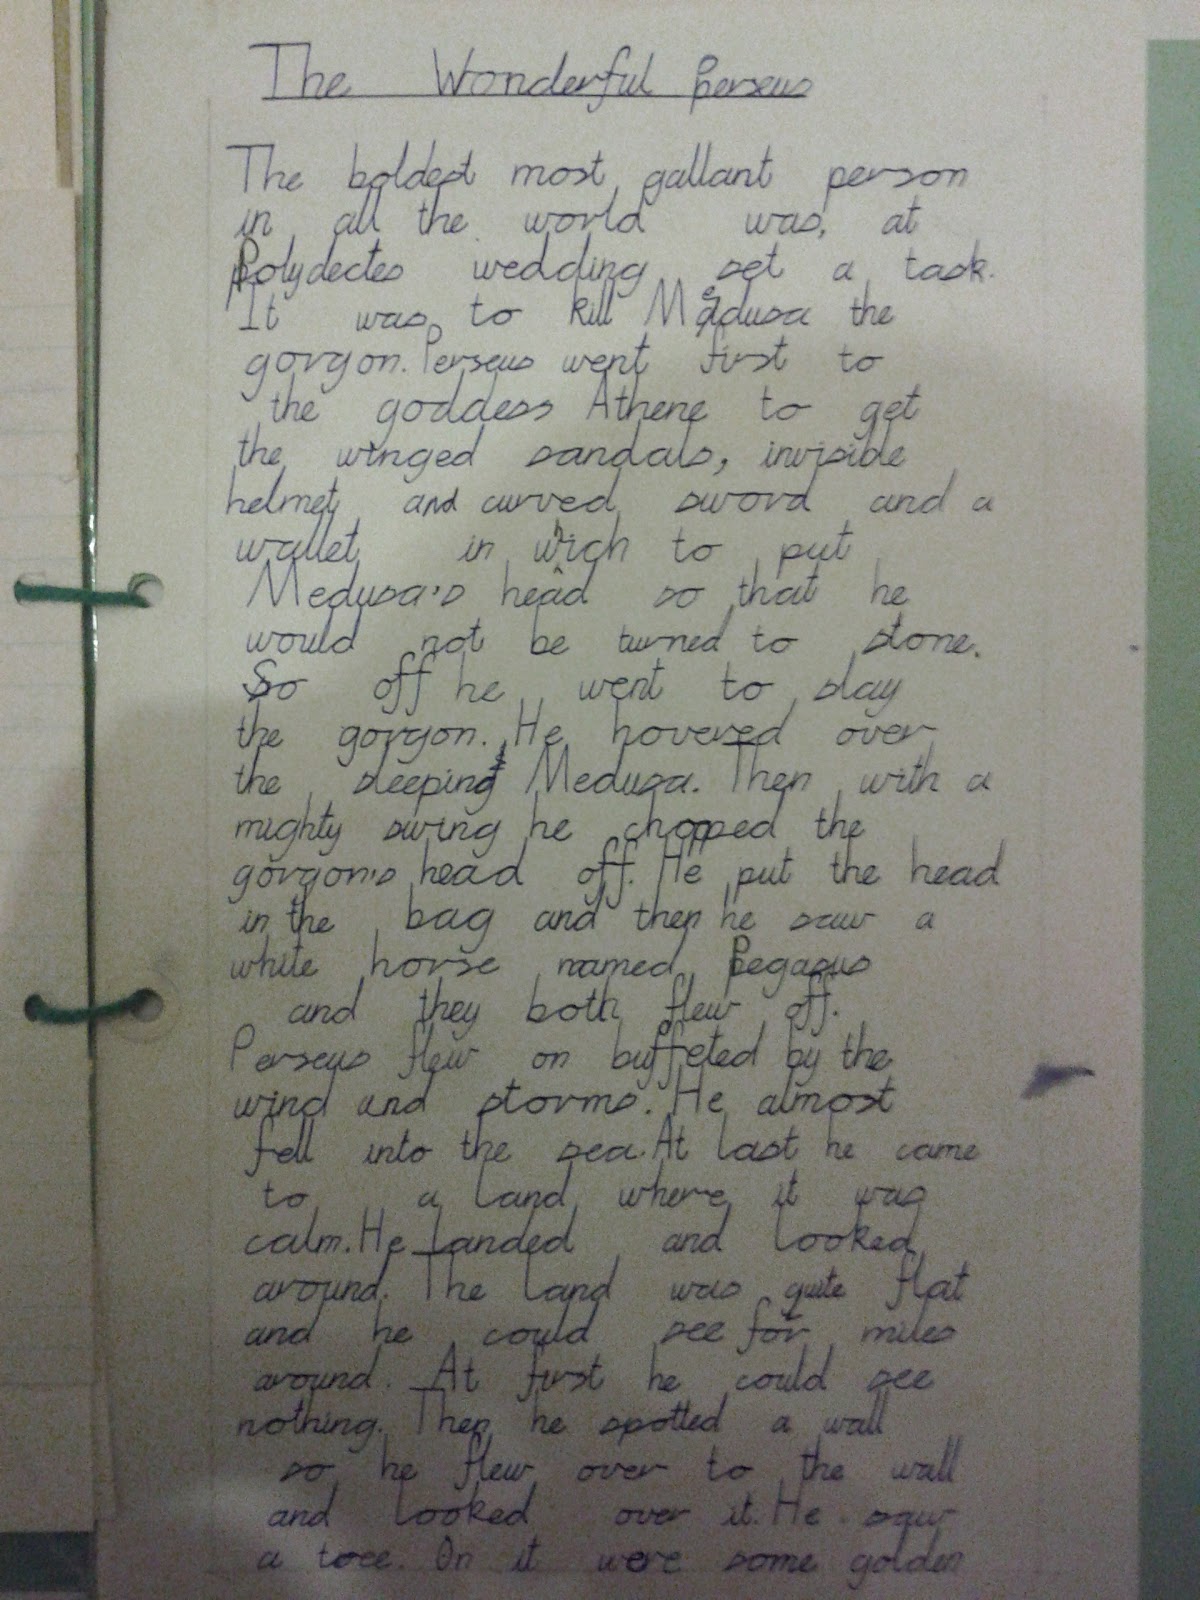 The Wonderful Perseus
The boldest most gallant person
in all the world was, at
Polydectes wedding set a task.
It was to kill Medusa the
gorgon. Perseus went first to
the goddess Athene to get
the winged sandals, invisible
helmet and curved sword and a
wallet in which to put
Medusa's head so that he
would not be turned to stone.
So off he went to slay
the gorgon. He hovered over
the sleeping Medusa. Then with a
mighty swing he chopped the
gorgon's head off. He put the head
in the bag and then he saw a
white horse named Pegasus
and they both flew off.
Perseus flew on buffeted by the
wind and storms. He almost
fell into the sea. At last he came
to a land where it was
calm. He landed and looked
around. The land was quite flat
and he could see for miles
around. At first he could see
nothing. Then he spotted a wall
so he flew over to the wall
and looked over it. He saw
a tree. On it were some golden